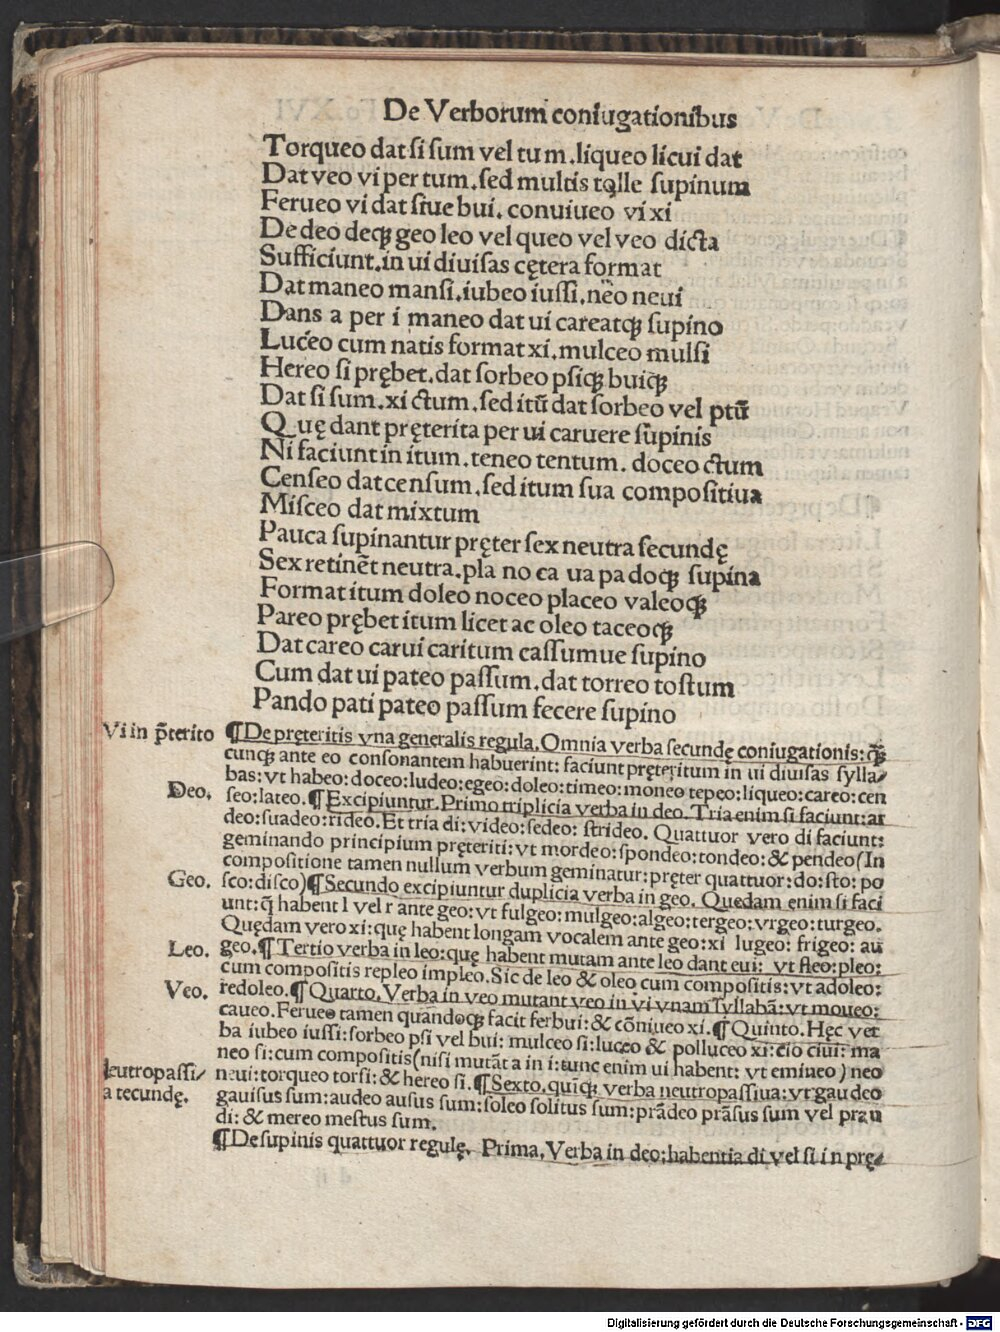 De Verborum coniugationibus
Torqueo dat si sum vel tum. liqueo licui dat
Dat veo vi per tum. sed multis tolle supinum
Ferueo vi dat siue bui. conuiueo vi xi
De deo deqꝫ geo leo vel queo vel veo dicta
Sufficiunt. in ui diuisas cętera format
Dat maneo mansi. iubeo iussi. neo neui
Dans a per i maneo dat ui careatqꝫ supino
Luceo cum natis format xi. mulceo mulsi
Hereo si prębet. dat sorbeo psiqꝫ buiqꝫ
Dat si sum. xi ctum. sed itū dat sorbeo vel ptū
Quę dant pręterita per ui caruere supinis
Ni faciunt in itum. teneo tentum. doceo ctum
Censeo dat censum. sed itum sua compositiua
Misceo dat mixtum
Pauca supinantur pręter sex neutra secundę
Sex retinēt neutra. pla no ca ua pa doqꝫ supina
Format itum doleo noceo placeo valeoqꝫ
Pareo prębet itum licet ac oleo taceoqꝫ
Dat careo carui caritum cassumue supino
Cum dat ui pateo passum. dat torreo tostum
Pando pati pateo passum fecere supino
Vi in p̄terito
¶De pręteritis vna generalis regula. Omnia verba secundę coniugationis: q̄
cunqꝫ ante eo consonantem habuerint: faciunt pręteritum in ui diuisas sylla/
bas: vt habeo: doceo: ludeo: egeo: doleo: timeo: moneo tepeo: liqueo: careo: cen
Deo.
seo: lateo. ¶Excipiuntur. Primo triplicia verba in deo. Tria enim si faciunt: ar
deo: suadeo: rideo. Et tria di: video: sedeo: strideo. Quattuor vero di faciunt:
geminando principium pręteriti: vt mordeo: spondeo: tondeo: & pendeo (In
compositione tamen nullum verbum geminatur: pręter quattuor: do: sto: po
Geo.
sco: disco) ¶Secundo excipiuntur duplicia verba in geo. Quedam enim si faci
unt: q̄ habent l vel r ante geo: vt fulgeo: mulgeo: algeo: tergeo: vrgeo: turgeo.
Quędam vero xi: quę habent longam vocalem ante geo: xi lugeo: frigeo: au
Leo.
geo. ¶Tertio verba in leo: quę habent mutam ante leo dant eui: vt fleo: pleo:
cum compositis repleo impleo. Sic de leo & oleo cum compositis: vt adoleo:
Veo.
redoleo. ¶Quarto. Verba in veo mutant veo in vi vnam syllabā: vt moueo:
caueo. Ferueo tamen quandoqꝫ facit ferbui: & cōniueo xi. ¶Quinto. Hęc ver
ba iubeo iussi: sorbeo psi vel bui: mulceo si: luceo & polluceo xi: cio ciui: ma
neo si: cum compositis (nisi mutāt a in i: tunc enim ui habent: vt emineo) neo
neutropassi/
neui: torqueo torsi: & hereo si. ¶Sexto. quiqꝫ verba neutropassiua: vt gaudeo
a secundę.
gauisus sum: audeo ausus sum: soleo solitus sum: prādeo prāsus sum vel pran
di: & mereo mestus sum.
¶De supinis quattuor regulę. Prima. Verba in deo: habentia di vel si in prę/